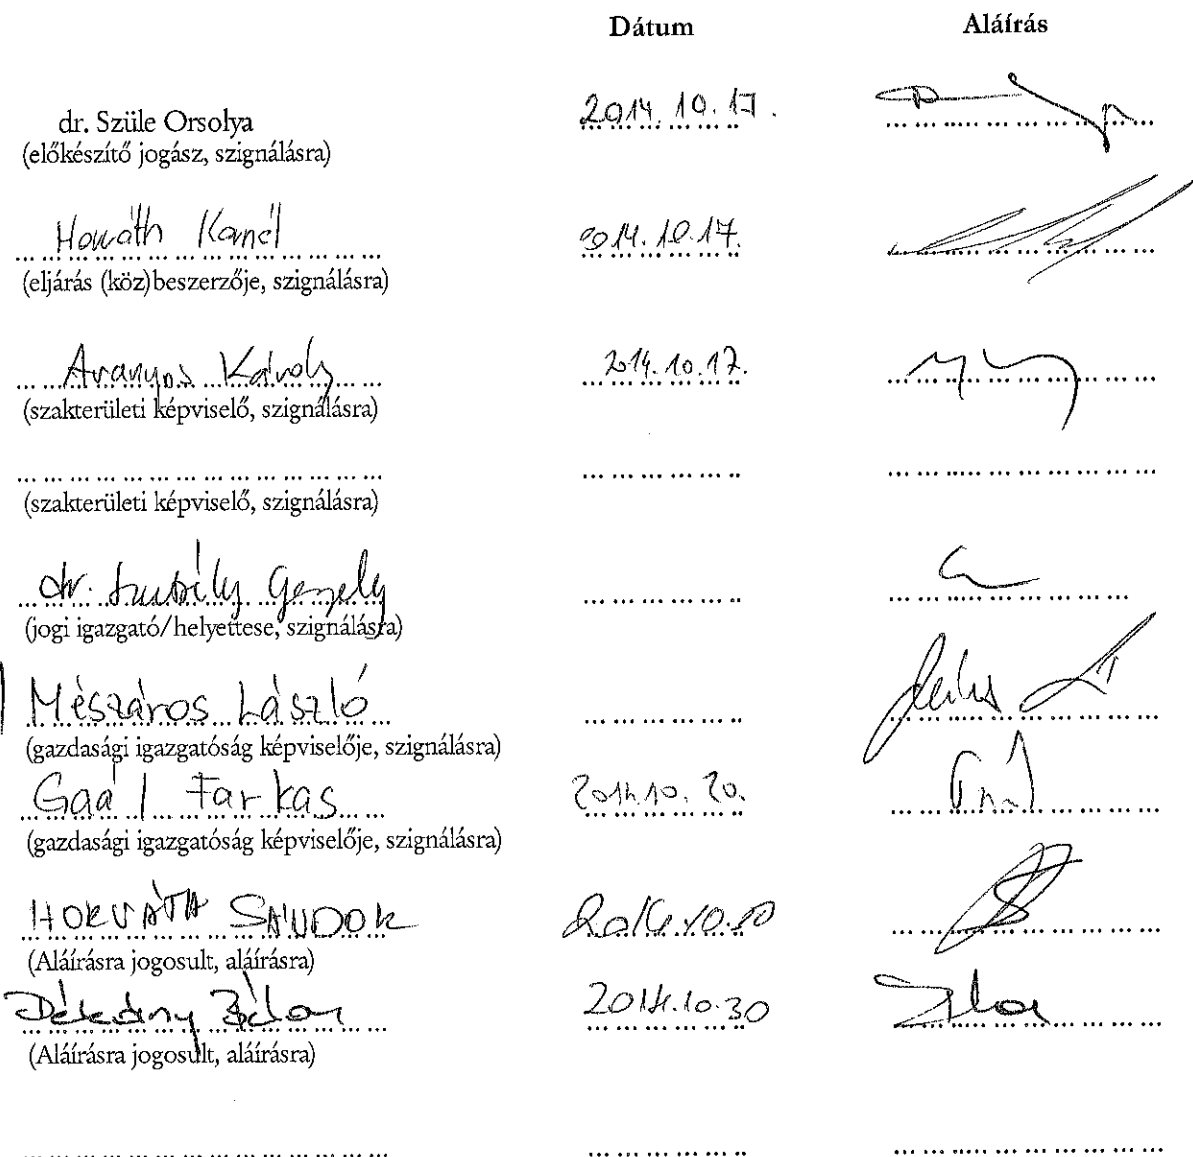 Dátum Aláírás
dr. Szüle Orsolya 2014. 10. 17.
(előkészítő jogász, szignálásra)
Horváth 2014. 10. 17.
(eljárás (köz)beszerzője, szignálásra)
Aranyos Károly 2014. 10. 17.
(szakterületi képviselő, szignálásra)
(szakterületi képviselő, szignálásra)
dr. Gergely
(jogi igazgató/helyettese, szignálásra)
Mészáros László
(gazdasági igazgatóság képviselője, szignálásra)
Gaál Farkas 2014. 10. 20.
(gazdasági igazgatóság képviselője, szignálásra)
HORVÁTH SÁNDOR
(Aláírásra jogosult, aláírásra)
Dékány 2014. 10. 30
(Aláírásra jogosult, aláírásra)